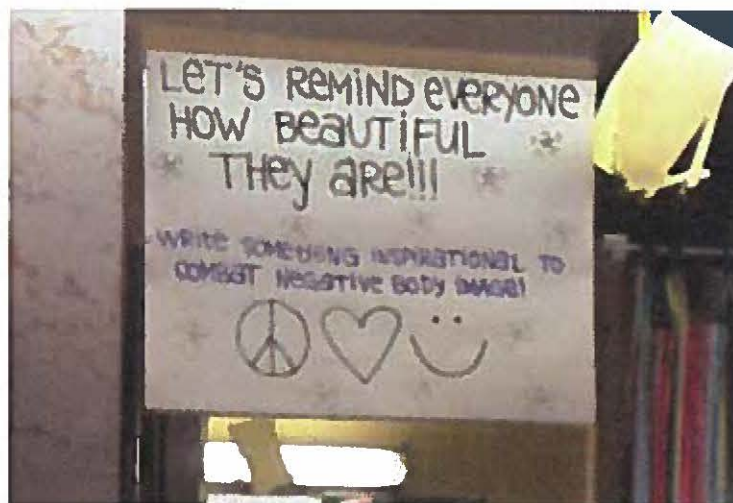 LeT'S ReMiND eVeRYONe
HOW BeaUTiFUL
THey aRe!!!
WRiTe SOMeTHiNG iNSPiRaTiONaL TO
COMBaT NeGaTiVe BODy iMaGe!